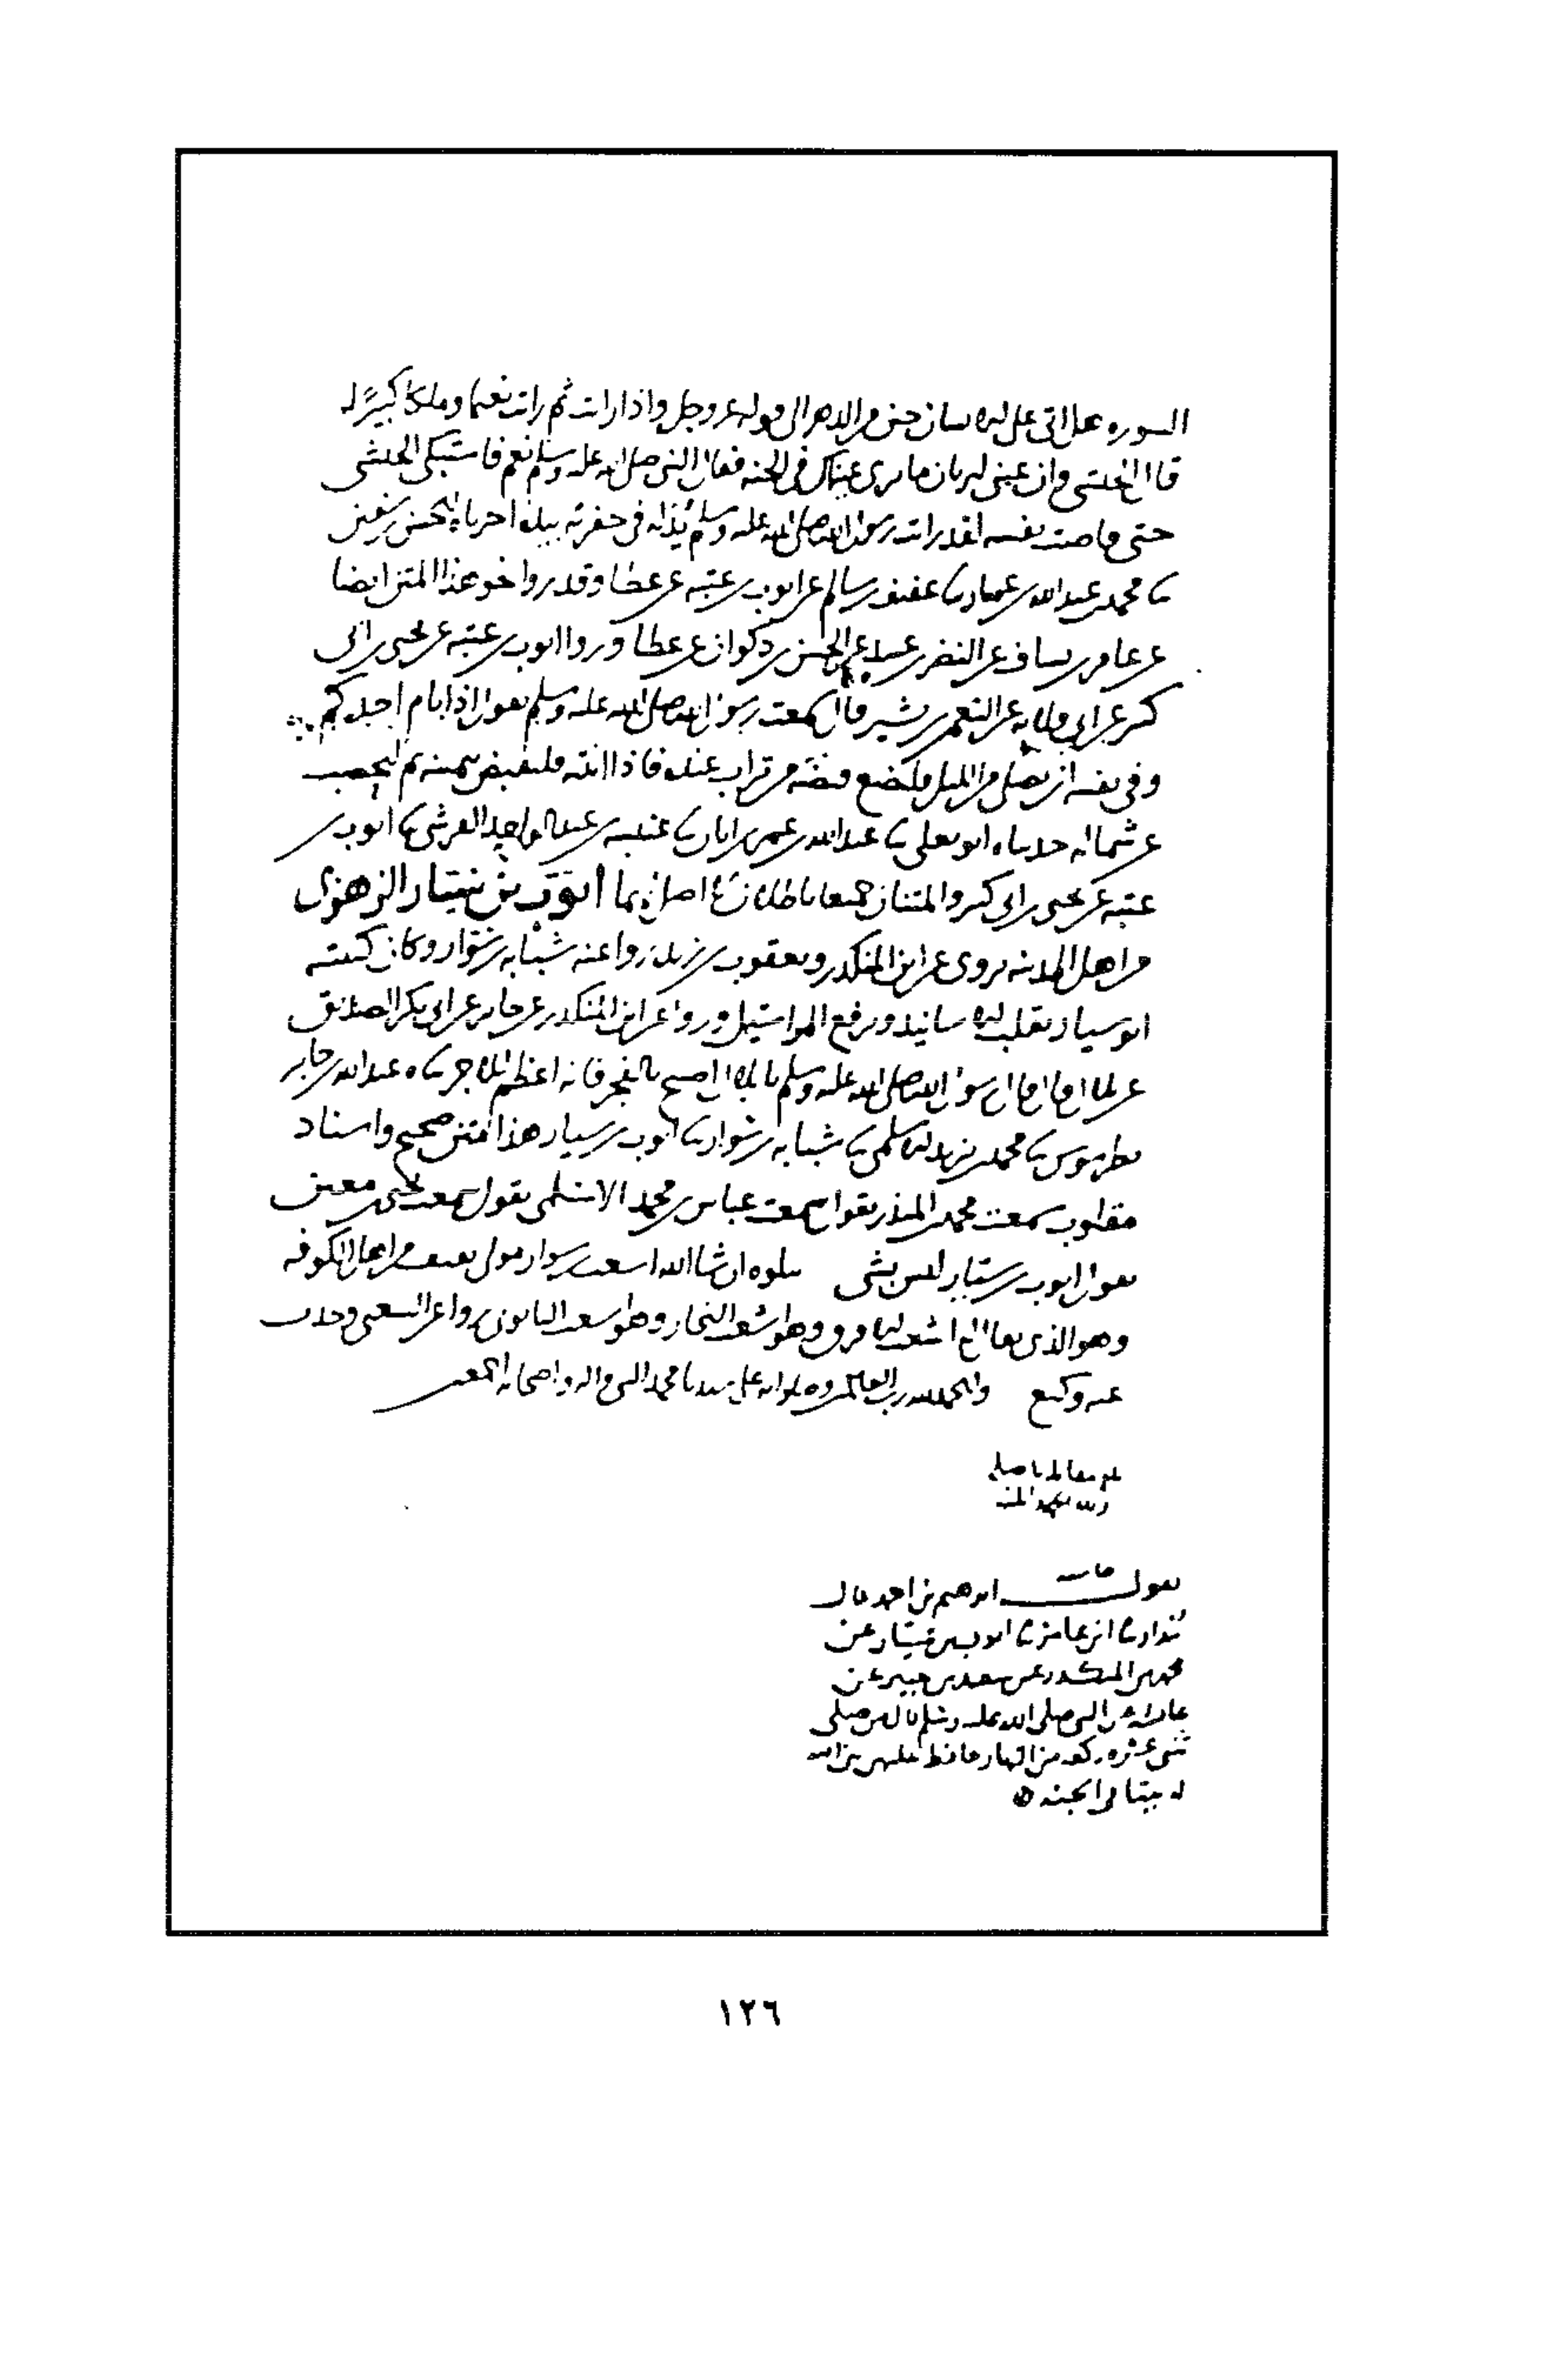 السوره هل اتى على الانسان حين من الدهر الى قوله عز وجل واذا رات ثم رات نعيما وملكا كبيرا
قال الحبشي وان عيني لتريان ما ترى عيناك في الجنه فقال النبي صلى الله عليه وسلم نعم فاستبكى الحبشي
حتى فاضت نفسه لقد رات رسول الله صلى الله عليه وسلم يدليه في حفرته بيده اخبرناه الحسن بن سفين
ثنا محمد بن عبد الله بن عمار ثنا عفيف بن سالم عن ايوب بن عتبه عن عطا وقد روا نحو هذا المتن ايضا
عن عامر بن يساف عن النضر بن عبيد عن الحسن بن ذكوان عن عطا وروا ايوب بن عتبه عن يحيى بن ابي
كثير عن ابي قلابه عن النعمن بن بشير قال سمعت رسول الله صلى الله عليه وسلم يقول اذا نام احدكم
وفي نفسه ان يصلي من الليل فليضع قبضه من تراب عنده فاذا انتبه فليقبض بيمينه ثم ليحصب
عن شماله حدثناه ابو يعلى ثنا عبد الله بن عمر بن ابان ثنا عنبسه بن عبد الواحد القرشي ثنا ايوب بن
عتبه عن يحيى بن ابي كثير والمتنان جميعا باطلان لا اصل لهما ايوب بن سيار الزهري
من اهل المدينه يروي عن ابن المنكدر ويعقوب بن زيد روا عنه شبابه بن سوار وكان كنيته
ابو سيار يقلب الاسانيد ويرفع المراسيل وروا عن ابن المنكدر عن جابر عن ابي بكر الصديق
عن بلال قال قال رسول الله صلى الله عليه وسلم يا بلال اصبح بالفجر فانه اعظم للاجر ثناه عبد الله بن جابر
بطرسوس ثنا محمد بن يزيد الاسلمي ثنا شبابه بن سوار ثنا ايوب بن سيار هذا متن صحيح واسناد
مقلوب سمعت محمد بن المنذر يقول سمعت عباس بن محمد الاسلمي يقول سمعت يحيى بن معين
يقول ايوب بن سيار ليس بشي يتلوه ان شا الله اشعث بن سوار مولى ثقيف من اهل الكوفه
وهو الذي يقال له اشعث الافرق وهو اشعث النجار وهو اشعث التابوتي روا عن الشعبي وحدث
عنه وكيع والحمد لله رب العالمين وصلواته على سيدنا محمد النبي واله واصحابه اجمعين
ابرهيم بن احمد قال
ايوب بن سيار عن
محمد بن المنكدر عن سعيد بن جبير عن
النبي صلى الله عليه وسلم قال من صلى
ثنتي عشره ركعه من النهار حافظ عليهن بنى الله
له بيتا في الجنه
١٢٦